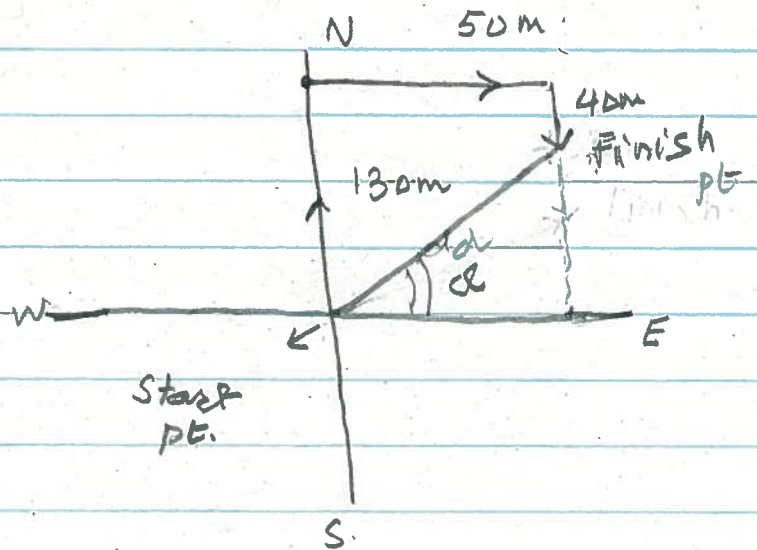 N
50m
40m
Finish
pt
130m
d
α
W
E
Start
pt.
S.